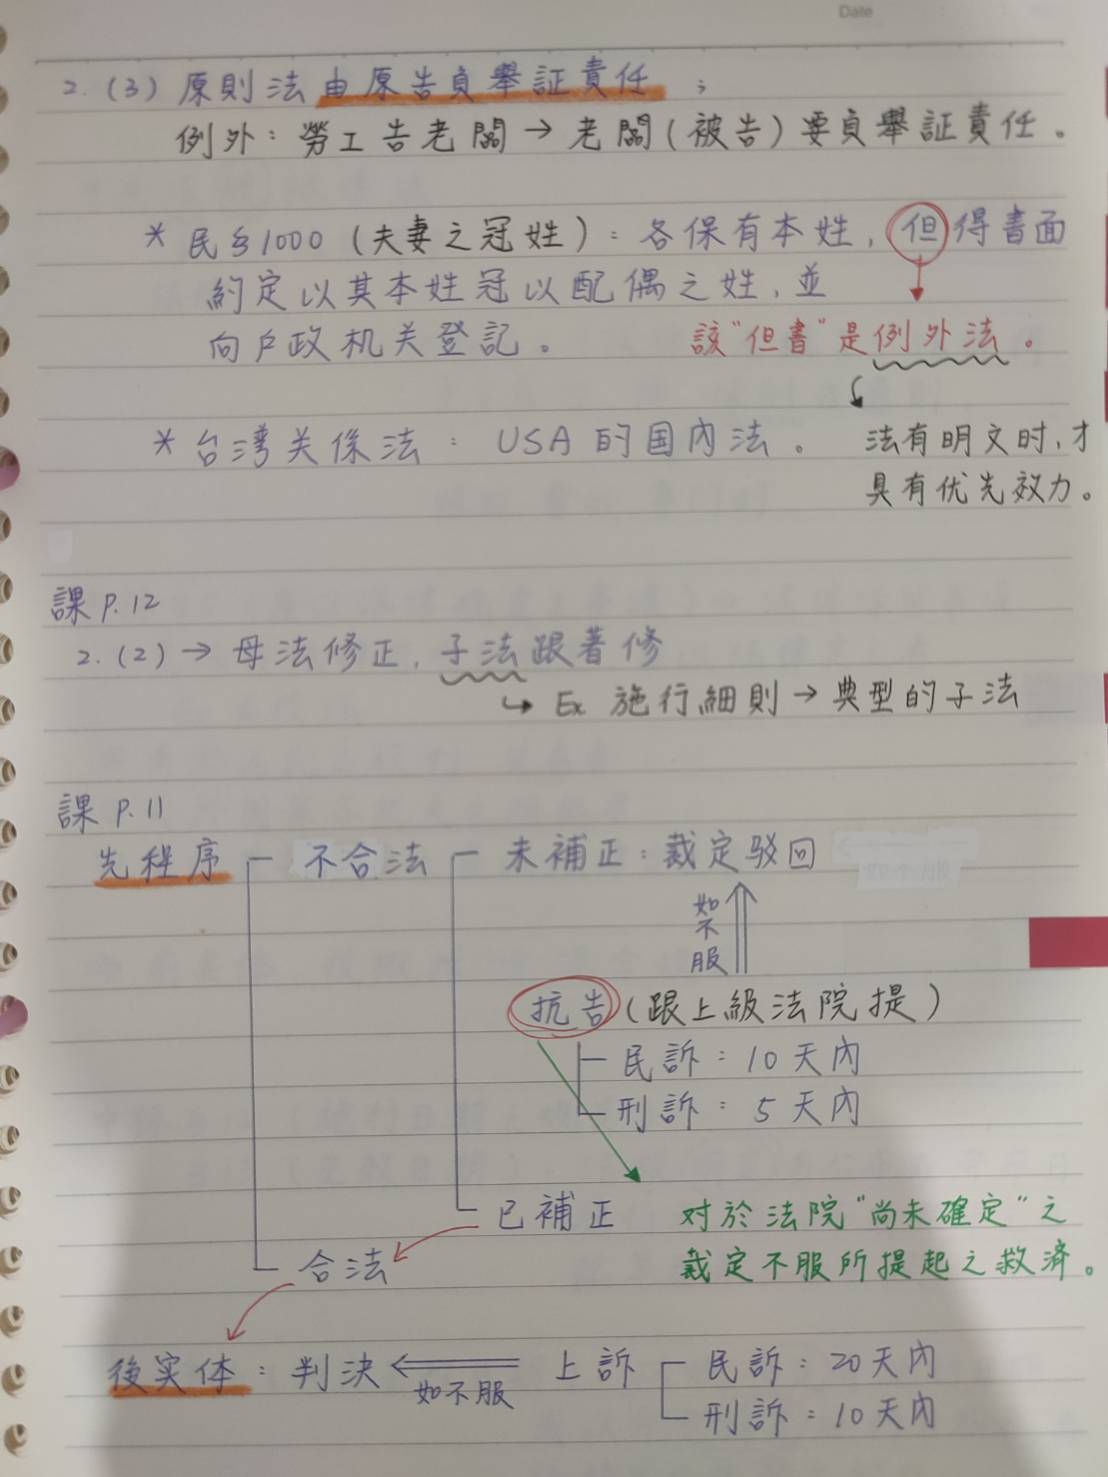 Date
2. (3) 原則法由原告負舉証責任；
例外：勞工告老闆→老闆(被告)要負舉証責任。
* 民§1000 (夫妻之冠姓)：各保有本姓，但得書面
約定以其本姓冠以配偶之姓，並
向戶政机关登記。
該"但書"是例外法。
* 台灣关係法： USA 的国內法。
法有明文时，才
具有优先效力。
課 P.12
2. (2) → 母法修正，子法跟著修
↳ Ex 施行細則→典型的子法
課 P.11
先程序 不合法 未補正：裁定驳回
如不服
抗告(跟上級法院提)
民訴：10天內
刑訴：5天內
已補正
对於法院"尚未確定"之
裁定不服所提起之救済。
合法
後实体：判決 ⇐ 如不服 上訴 民訴：20天內
刑訴：10天內